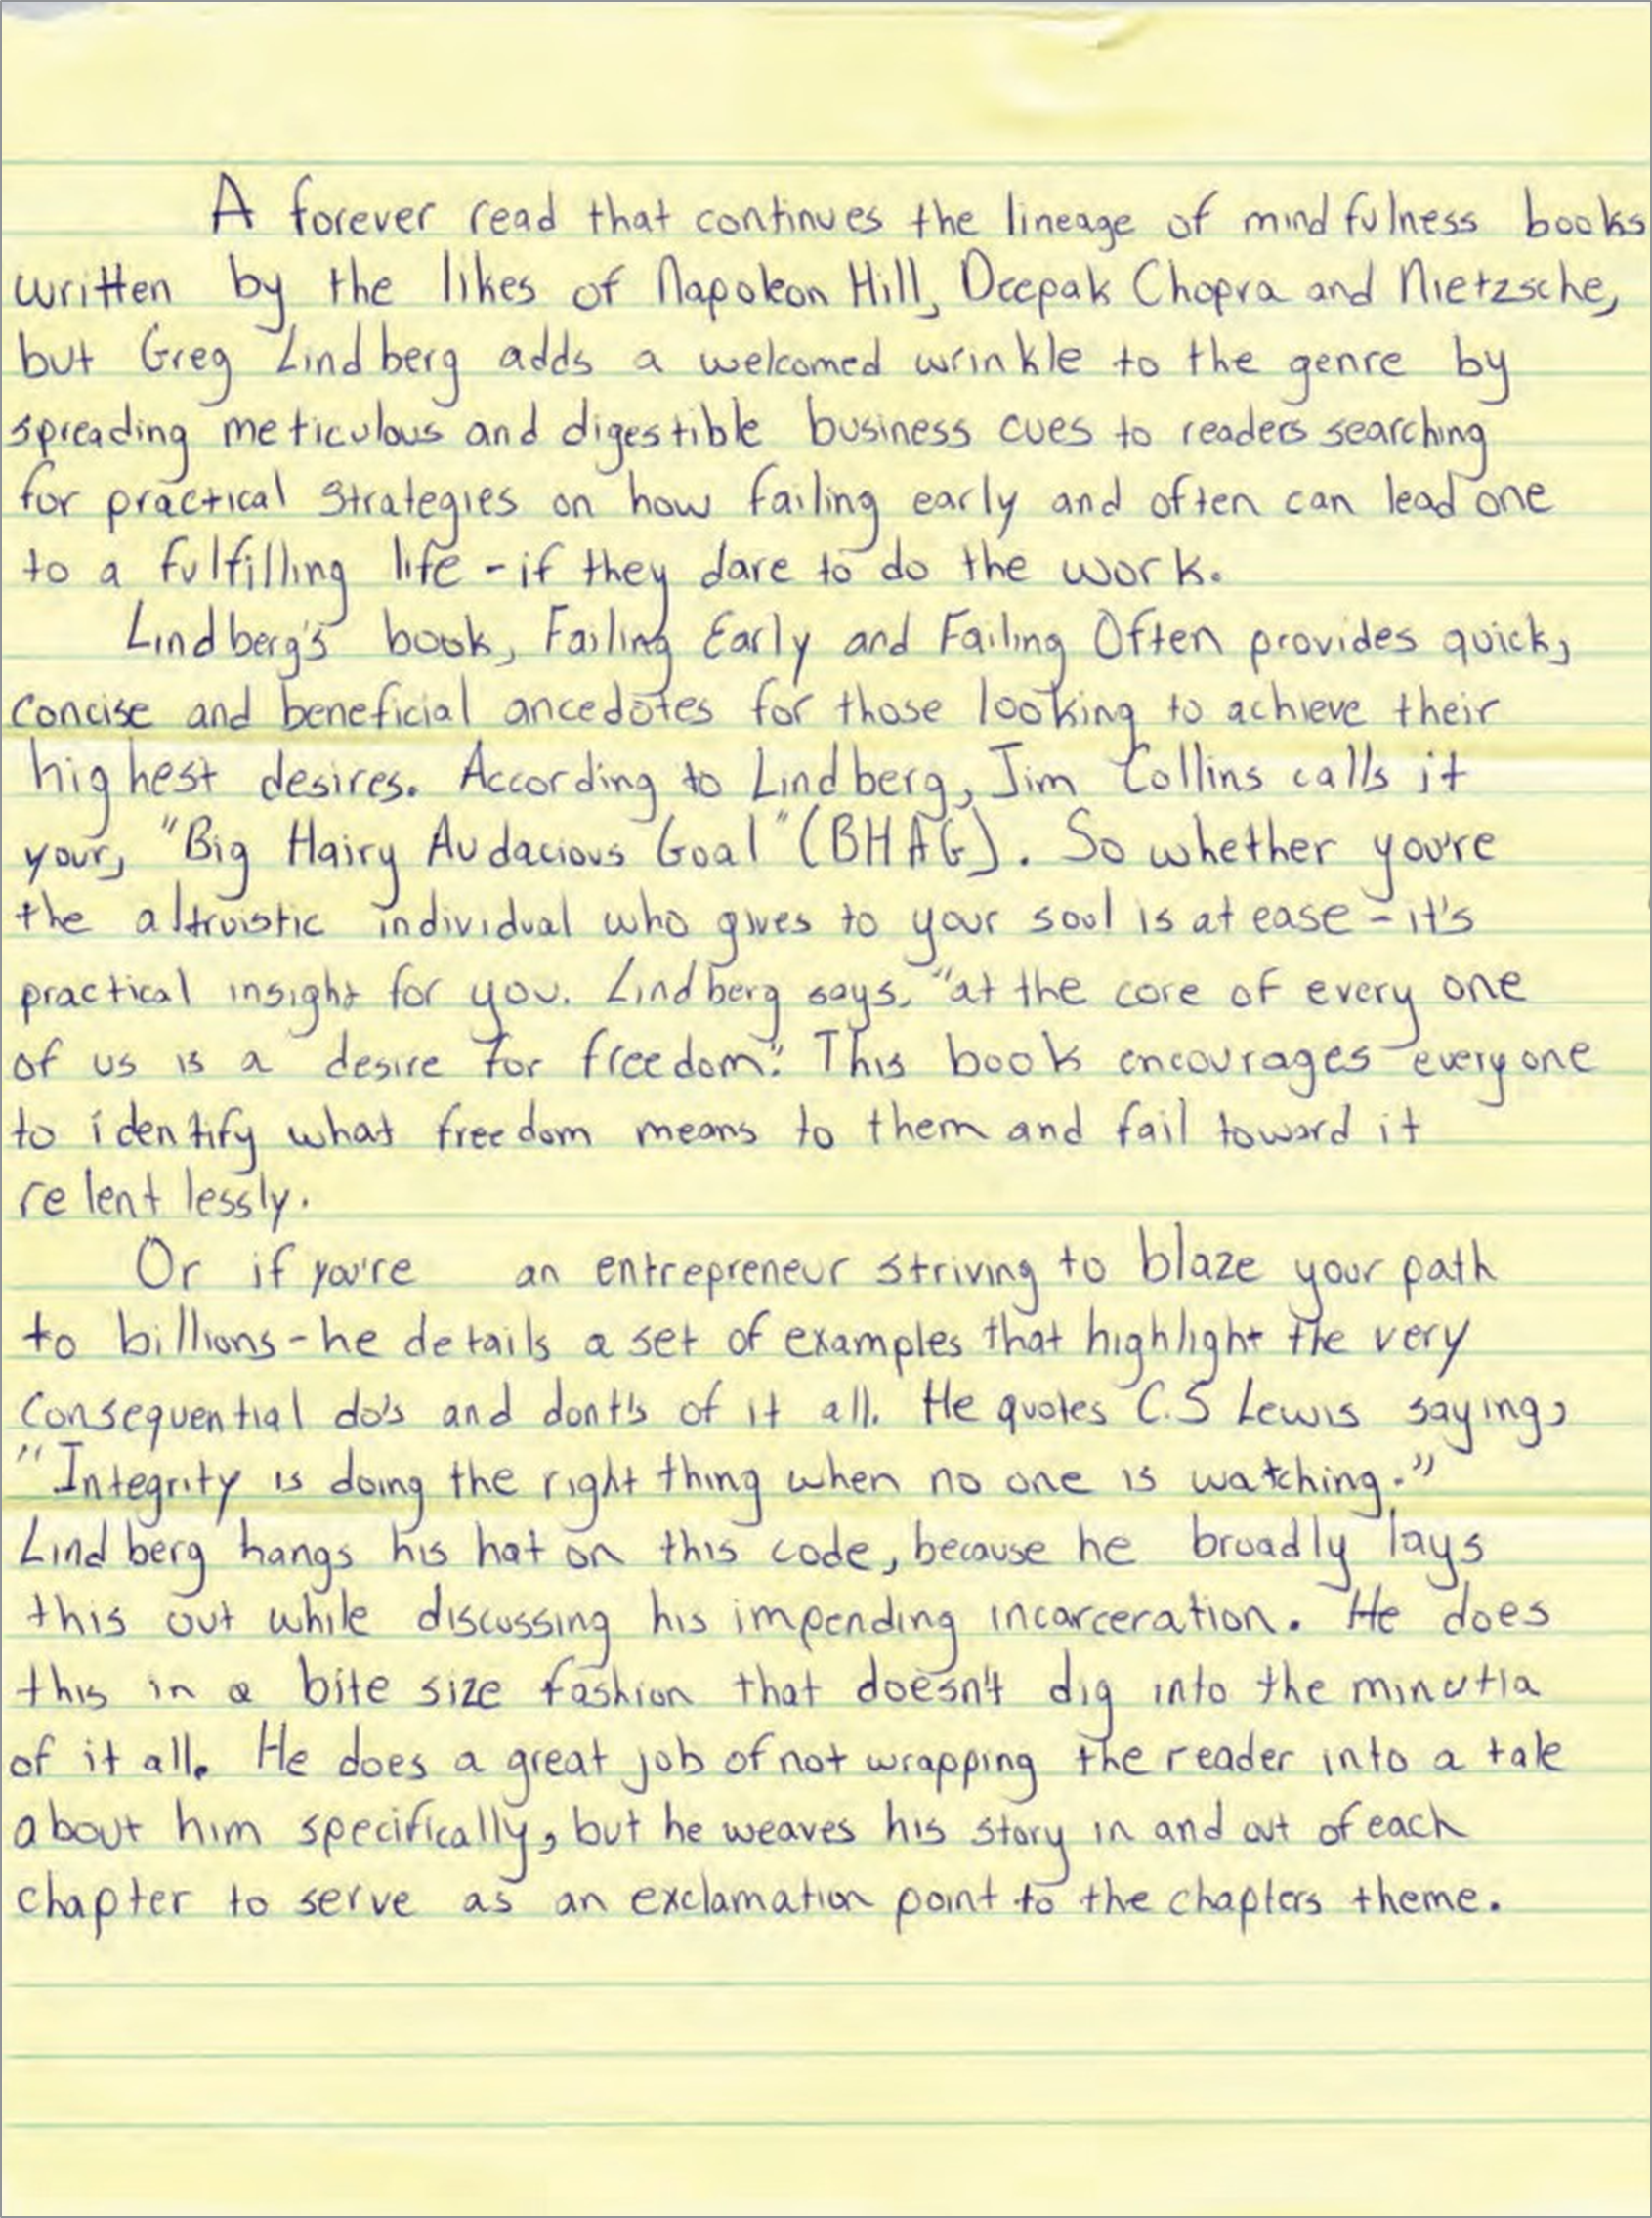 A forever read that continues the lineage of mindfulness books
written by the likes of Napoleon Hill, Deepak Chopra and Nietzsche,
but Greg Lindberg adds a welcomed wrinkle to the genre by
spreading meticulous and digestible business cues to readers searching
for practical strategies on how failing early and often can lead one
to a fulfilling life - if they dare to do the work.
Lindberg's book, Failing Early and Failing Often provides quick,
concise and beneficial ancedotes for those looking to achieve their
highest desires. According to Lindberg, Jim Collins calls it
your, "Big Hairy Audacious Goal" (BHAG). So whether you're
the altruistic individual who gives to your soul is at ease - it's
practical insight for you. Lindberg says, "at the core of every one
of us is a desire for freedom." This book encourages everyone
to identify what freedom means to them and fail toward it
relentlessly.
Or if you're an entrepreneur striving to blaze your path
to billions - he details a set of examples that highlight the very
consequential do's and dont's of it all. He quotes C.S Lewis saying,
"Integrity is doing the right thing when no one is watching."
Lindberg hangs his hat on this code, because he broadly lays
this out while discussing his impending incarceration. He does
this in a bite size fashion that doesn't dig into the minutia
of it all. He does a great job of not wrapping the reader into a tale
about him specifically, but he weaves his story in and out of each
chapter to serve as an exclamation point to the chapters theme.